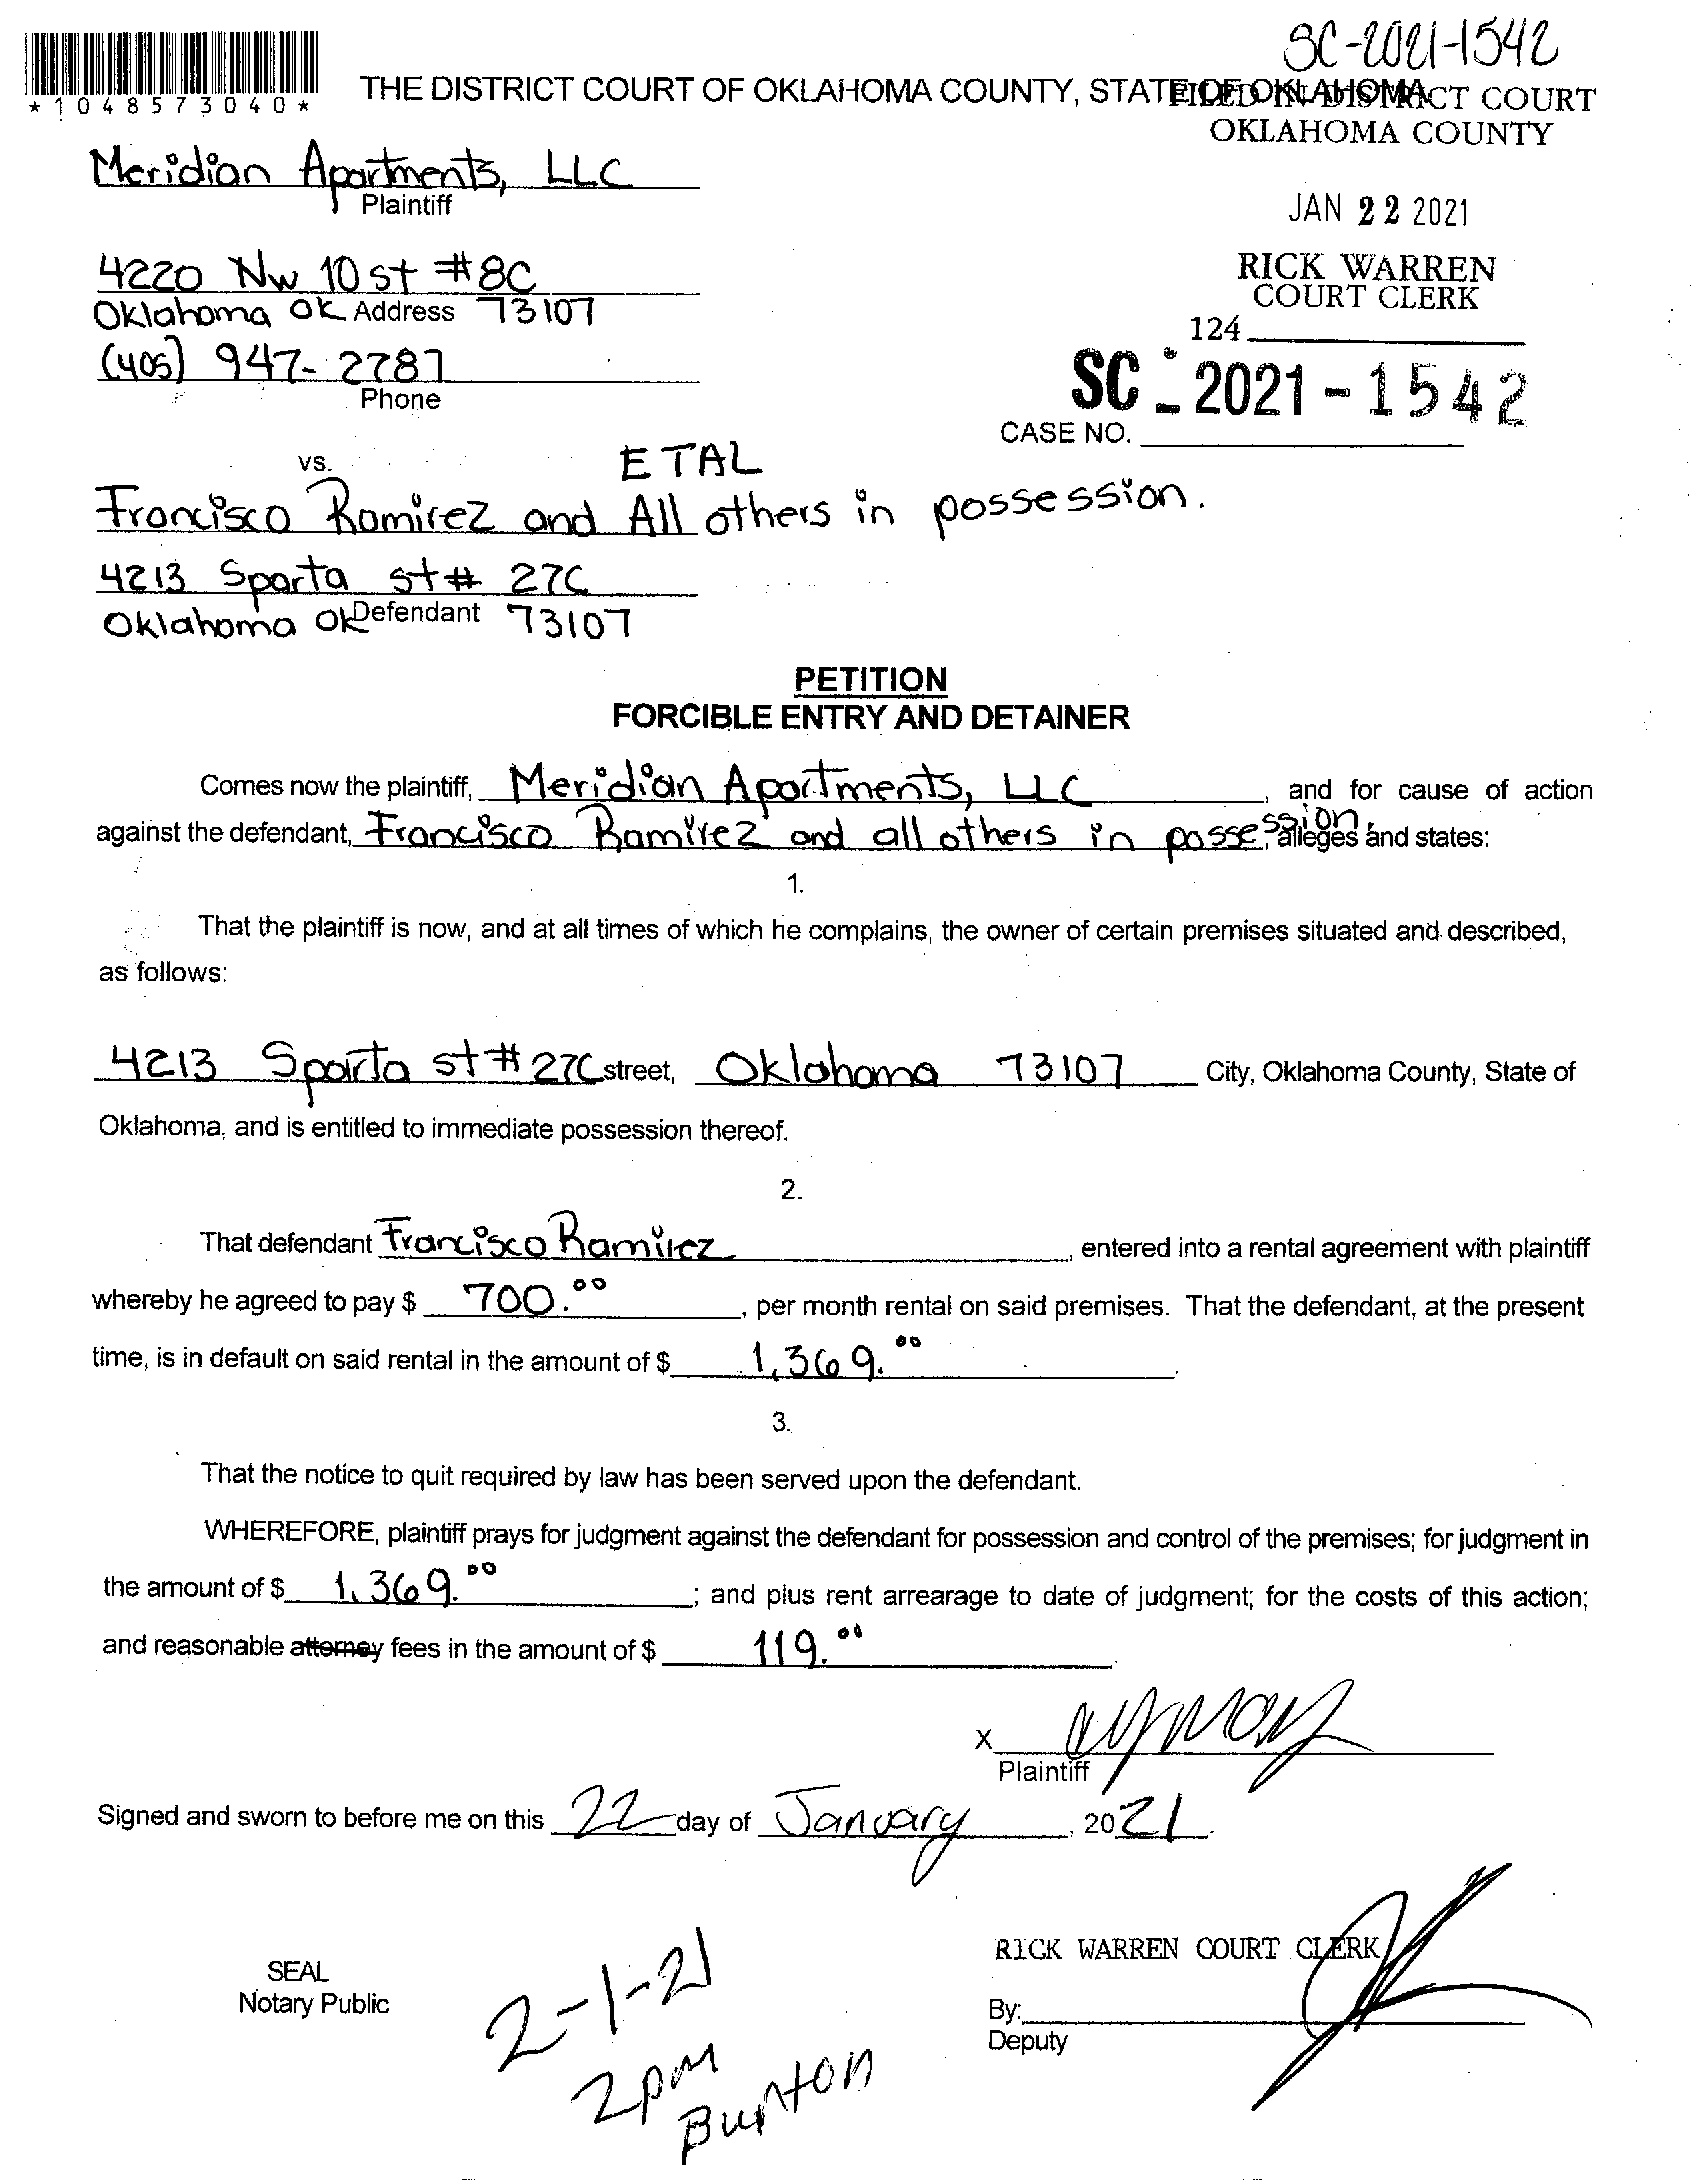 SC-2021-1542
*1048573040*
THE DISTRICT COURT OF OKLAHOMA COUNTY, STATE OF OKLAHOMA
FILED IN DISTRICT COURT
OKLAHOMA COUNTY
Meridian Apartments, LLC
Plaintiff
JAN 22 2021
4220 NW 10 st #8C
Oklahoma OK Address 73107
RICK WARREN
COURT CLERK
124
(405) 947-2787
Phone
SC-2021-1542
CASE NO.
vs.
ETAL
Francisco Ramirez and All others in possession.
4213 Sparta st # 27C
Oklahoma OK Defendant 73107
PETITION
FORCIBLE ENTRY AND DETAINER
Comes now the plaintiff, Meridian Apartments, LLC, and for cause of action
against the defendant, Francisco Ramirez and all others in possession, alleges and states:
1.
That the plaintiff is now, and at all times of which he complains, the owner of certain premises situated and described,
as follows:
4213 Sparta st # 27C street, Oklahoma 73107 City, Oklahoma County, State of
Oklahoma, and is entitled to immediate possession thereof.
2.
That defendant Francisco Ramirez, entered into a rental agreement with plaintiff
whereby he agreed to pay $ 700.00, per month rental on said premises. That the defendant, at the present
time, is in default on said rental in the amount of $ 1,369.00.
3.
That the notice to quit required by law has been served upon the defendant.
WHEREFORE, plaintiff prays for judgment against the defendant for possession and control of the premises; for judgment in
the amount of $ 1,369.00; and plus rent arrearage to date of judgment; for the costs of this action;
and reasonable attorney fees in the amount of $ 119.00.
X
Plaintiff
Signed and sworn to before me on this 22 day of January, 2021.
RICK WARREN COURT CLERK
SEAL
Notary Public
By:
Deputy
2-1-21
2pm
Burton